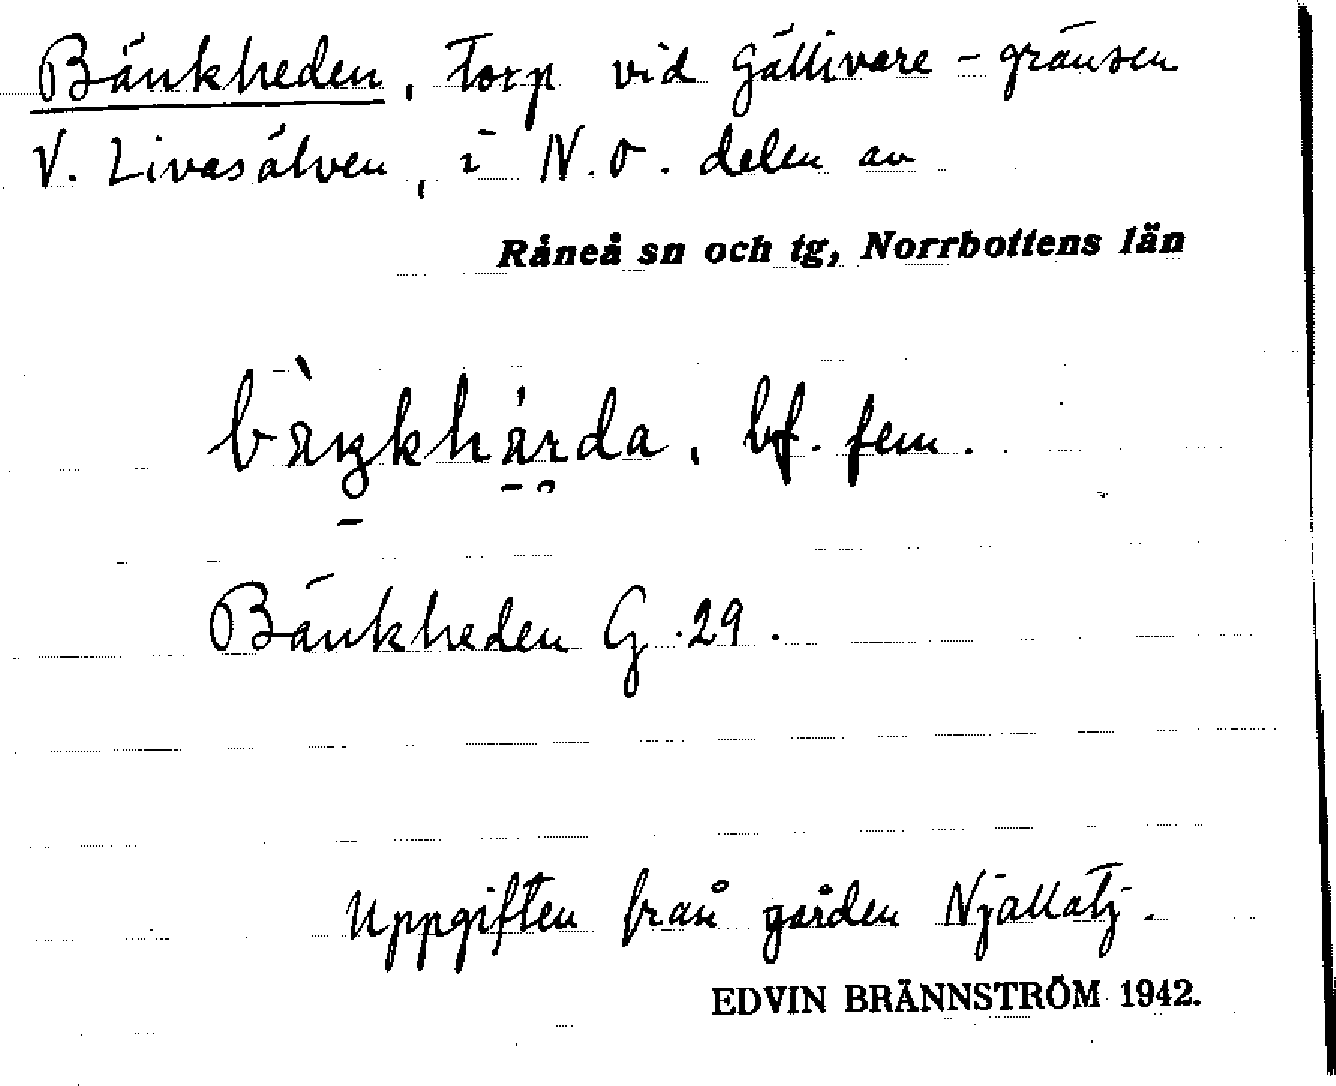 Bänkheden, torp vid Gällivare-gränsen
V. Livasälven, i N.O. delen av
Råneå sn och tg, Norrbottens län
bf. fem.
Bänkheden G. 29.
Uppgiften från gården Njallatj.
EDVIN BRÄNNSTRÖM 1942.